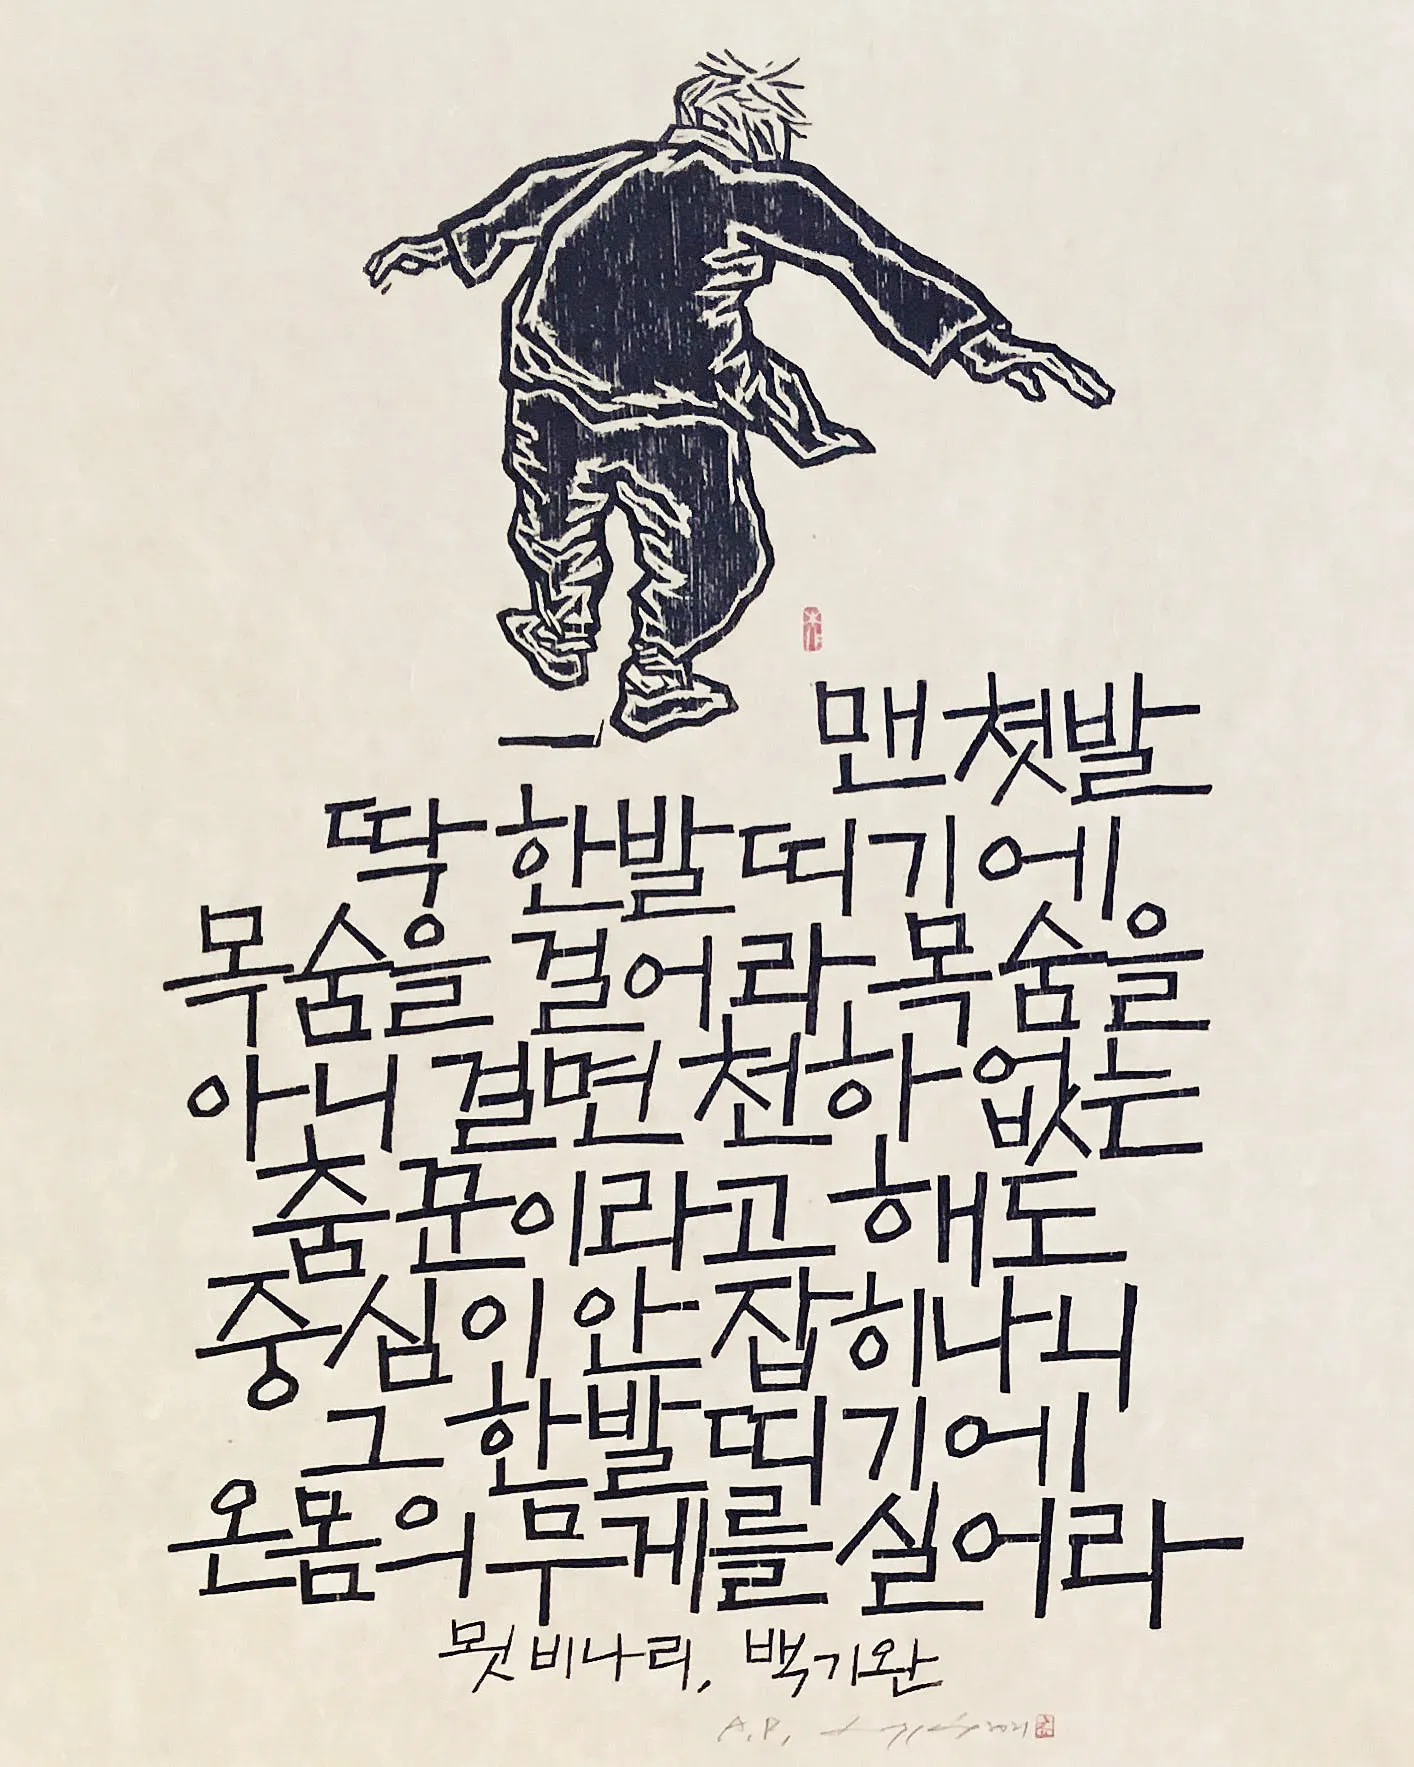 맨 첫발
딱 한발 띠기에
목숨을 걸어라 목숨을
아니 걸면 천하 없는
춤꾼이라고 해도
중심이 안 잡히나니
그 한발 띠기에
온몸의 무게를 실어라
묏비나리, 백기완
A.P. 2021